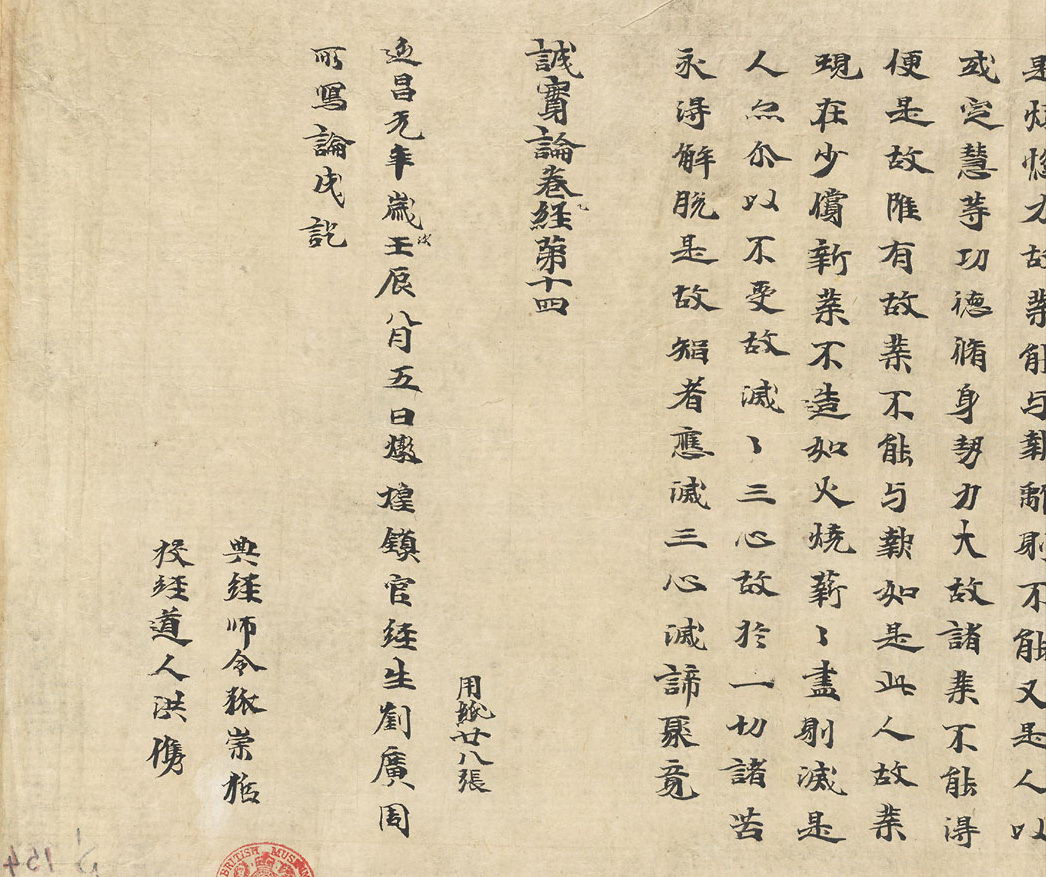 是煩惱力故業能与報離則不能又是人以
或定慧等功德脩身勢力大故諸業不能得
便是故唯有故業不能与報如是此人故業
現在少償新業不造如火燒薪〻盡則滅是
人亦尒以不受故滅〻三心故於一切諸苦
永得解脫是故智者應滅三心滅諦聚竟
誠實論卷經第十四
用紙廿八張
延昌元年歲次壬辰八月五日燉煌鎮官經生劉廣周
所寫論成訖
典經師令狐崇哲
校經道人洪儁
BRITISH MUSEUM